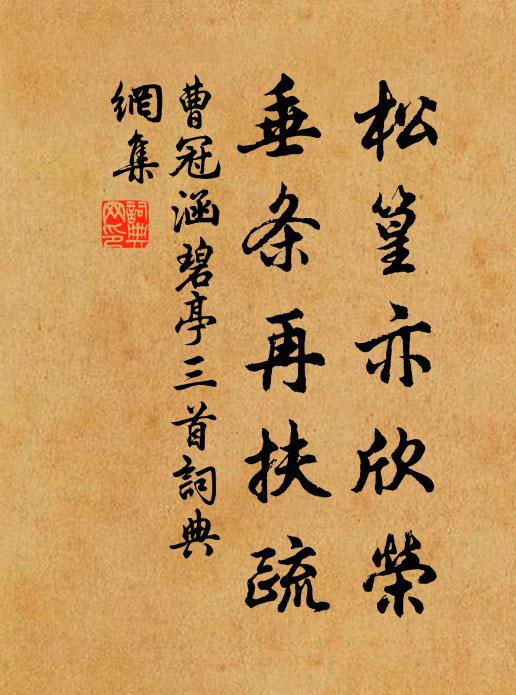 松篁亦欣榮
垂条再扶疏
曹冠涵碧亭三首詞典
網集
詞典
网印